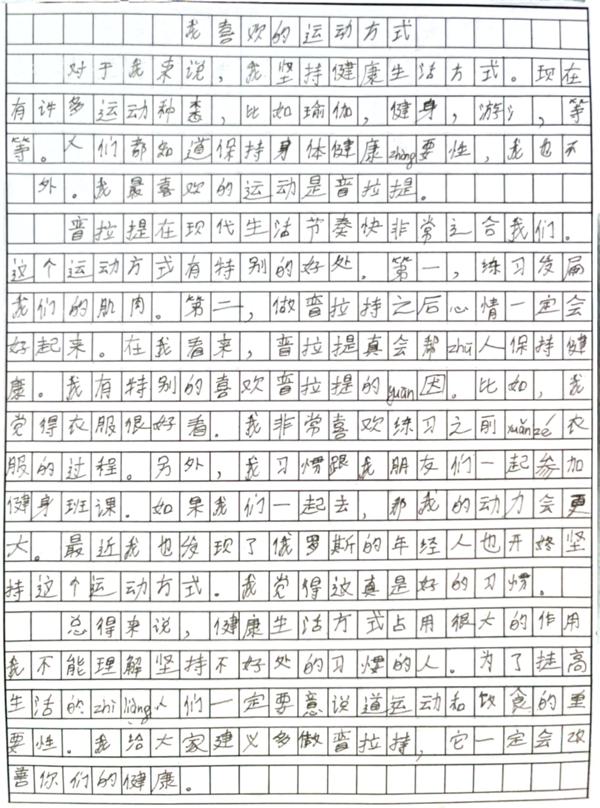 我喜欢的运动方式
对于我来说，我坚持健康生活方式。现在
有许多运动种类，比如瑜伽，健身，游氵，等
等。人们都知道保持身体健康zhòng要性，我也不
外。我最喜欢的运动是普拉提。
普拉提在现代生活节奏快非常之合我们。
这个运动方式有特别的好处。第一，练习发扁
我们的肌肉。第二，做普拉持之后心情一定会
好起来。在我看来，普拉提真会帮zhù人保持健
康。我有特别的喜欢普拉提的yuán因。比如，我
觉得衣服很好看。我非常喜欢练习之前xuǎnzé衣
服的过程。另外，我习惯跟我朋友们一起参加
健身班课。如果我们一起去，那我的动力会更
大。最近我也发现了俄罗斯的年经人也开始坚
持这个运动方式。我觉得这真是好的习惯。
总得来说，健康生活方式占用很大的作用
我不能理解坚持不好处的习惯的人。为了提高
生活的zhì liàng人们一定要意说道运动和饮食的重
要性。我给大家建义多做普拉持，它一定会改
善你们的健康。